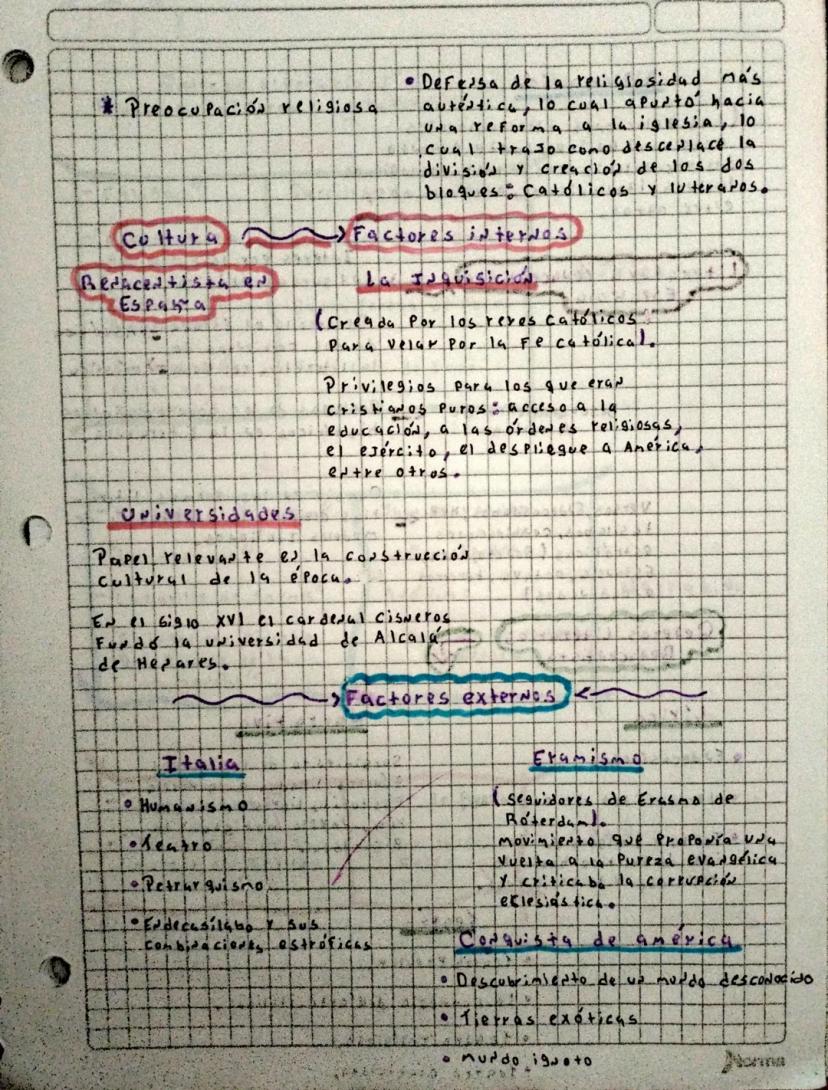 * Preocupación religiosa
• Defensa de la religiosidad más
auténtica, lo cual apuntó hacia
una reforma a la iglesia, lo
cual trajo como descenlace la
división y creación de los dos
bloques: Católicos y luteranos.
Cultura
Renacentista en
España
Factores internos
La Inquisición
(Creada por los reyes católicos
para velar por la fe católica).
Privilegios para los que eran
cristianos puros: acceso a la
educación, a las órdenes religiosas,
el ejército, el despliegue a América,
entre otros.
Universidades
Papel relevante en la construcción
cultural de la época.
En el siglo XVI el cardenal Cisneros
fundó la universidad de Alcalá
de Henares.
Factores externos
Italia
• Humanismo
• Teatro
• Petrarquismo
• Endecasílabo y sus
combinaciones estróficas
Eramismo
(seguidores de Erasmo de
Róterdam).
movimiento que proponía una
vuelta a la pureza evangélica
y criticaba la corrupción
eclesiástica.
Conquista de américa
• Descubrimiento de un mundo desconocido
• Tierras exóticas
• mundo ignoto
Norma